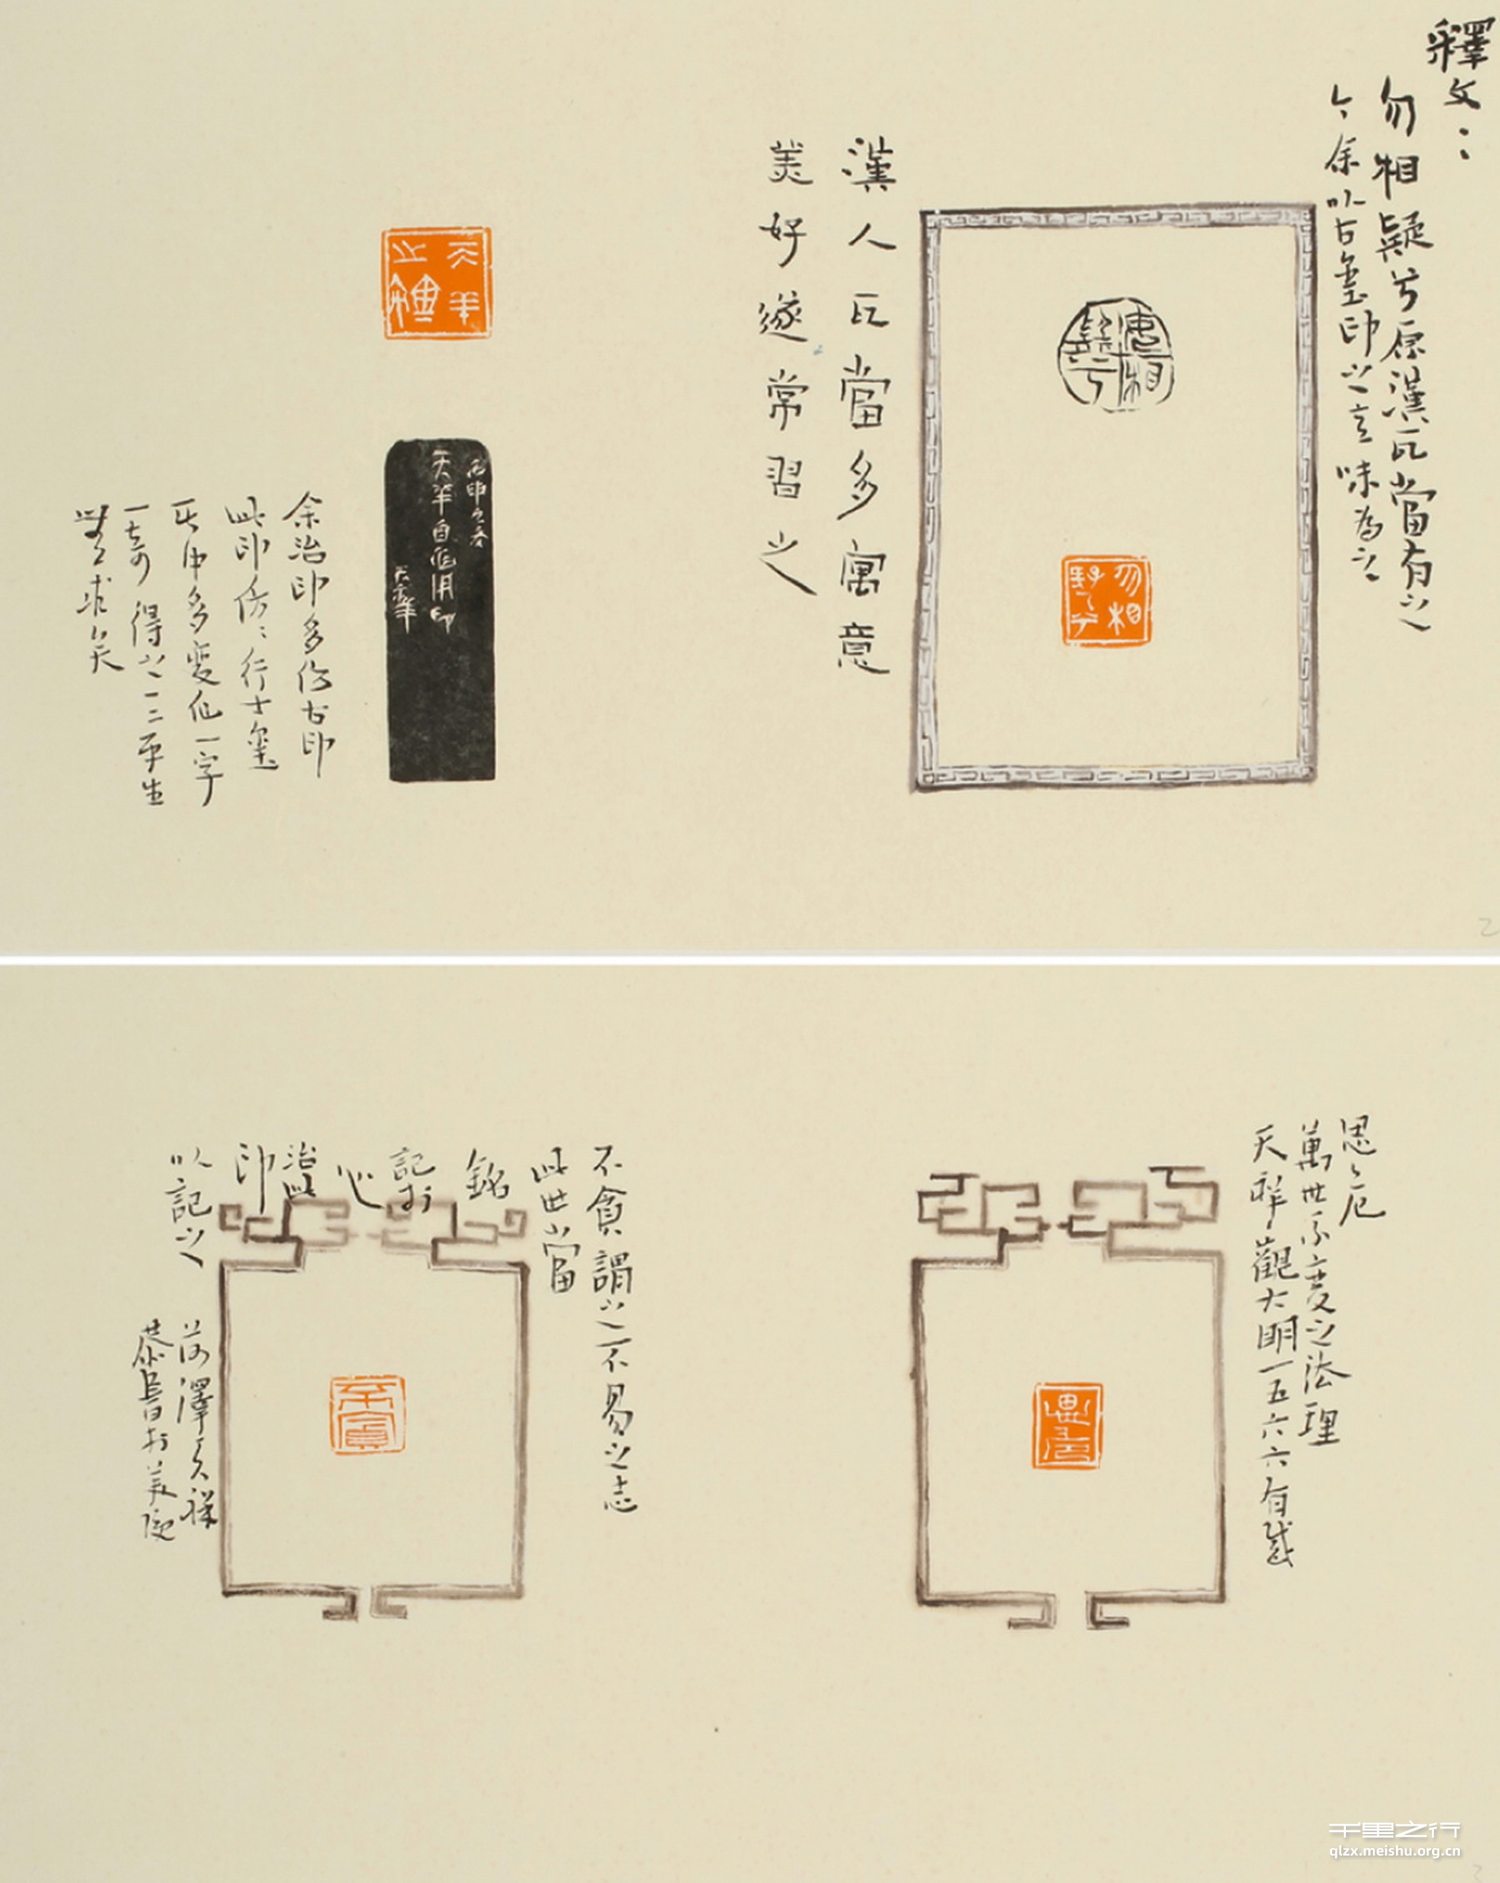 釋文：
勿相疑兮原漢瓦當有之
今余以古璽印之意味為之
勿相
漢人瓦當多寓意
美好遂常習之
天羊
之鉩
丙申之春
天羊自作用印
余治印多仿古印
此印仿
行士璽
多變化一字
得之一二平生
求矣
思危
萬世不變之法理
天祥觀大明一五六六有感
思危
不貪謂之不易之志
此世當
銘
記於
心
治此
印
以記之
不貪
菏澤天祥
恭書於
千里之行
qlzx.meishu.org.cn